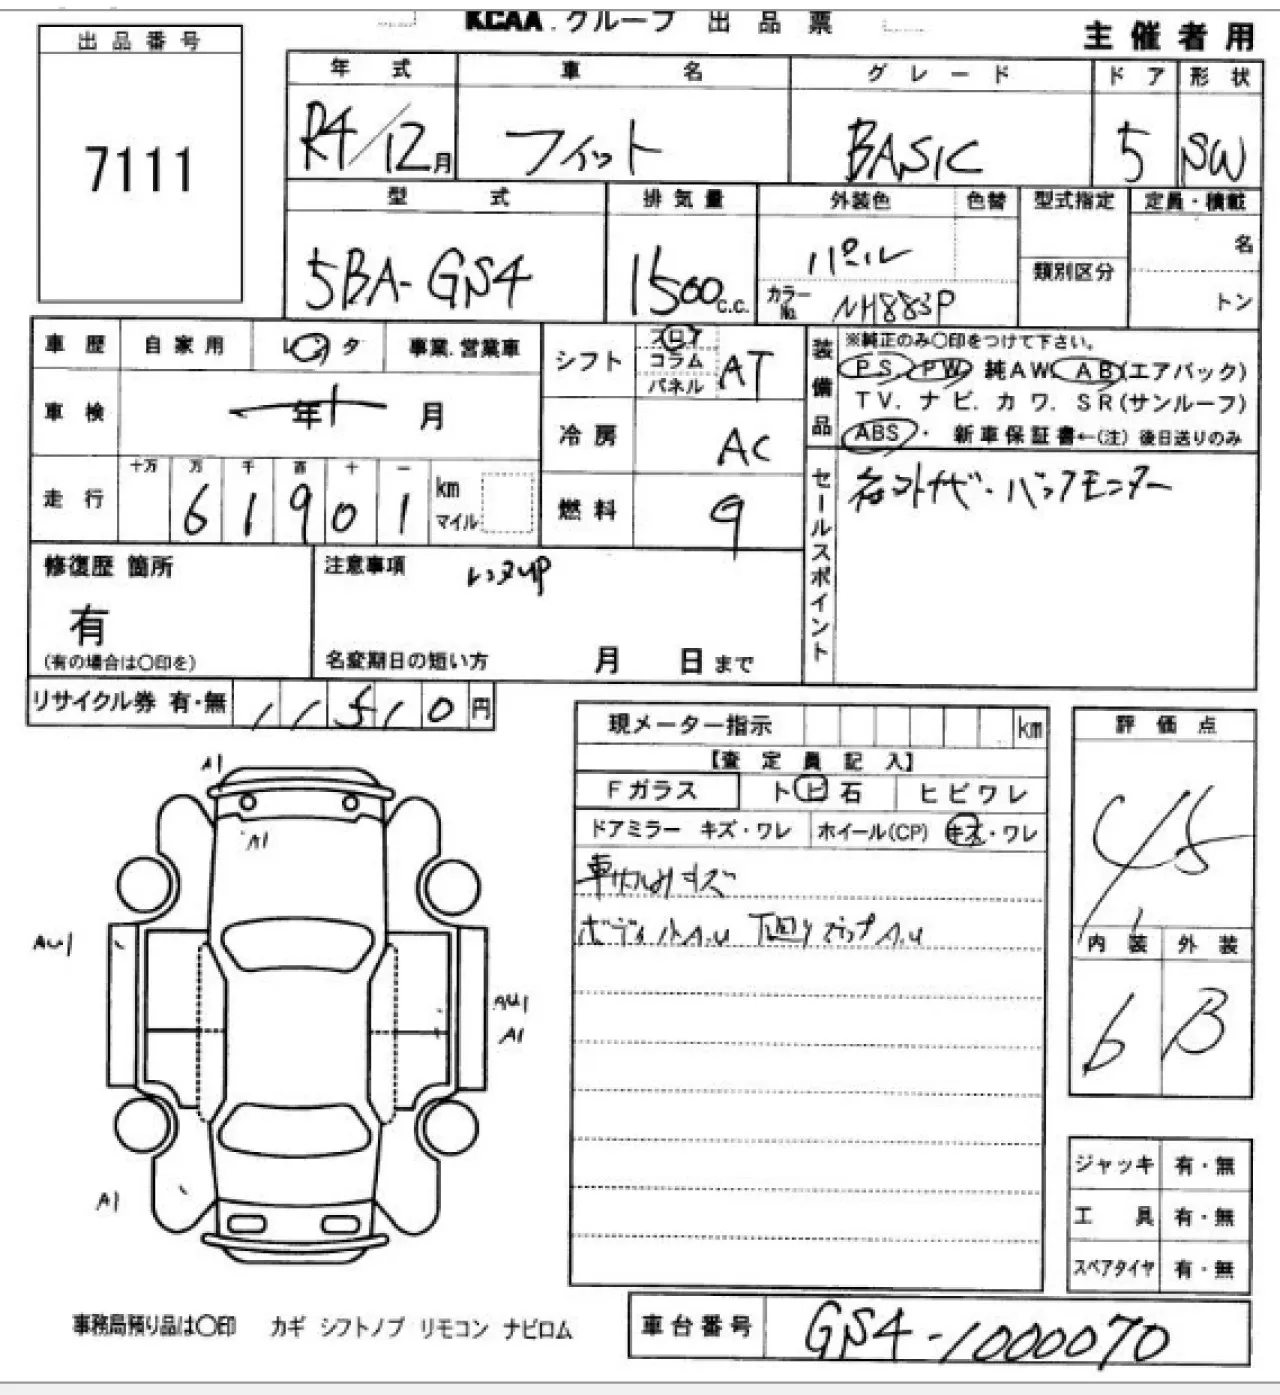 KCAA.グループ 出品票
主催者用
出品番号
7111
年式 車名 グレード ドア 形状
R4/12月 フィット BASIC 5 SW
型式 排気量 外装色 色替 型式指定 定員・積載
5BA-GS4 1500c.c. パール 類別区分 名
カラーNo. NH883P トン
車歴 自家用 レンタ 事業.営業車
車検 年 月
走行 十万 万 千 百 十 一
6 1 9 0 1 km マイル
シフト フロア コラム パネル AT
冷房 AC
燃料 g
装備品
※純正のみ〇印をつけて下さい。
PS. PW. 純AW. AB(エアバック)
TV. ナビ. カワ. SR(サンルーフ)
ABS・ 新車保証書←(注) 後日送りのみ
セールスポイント
バックモニター
修復歴 箇所
有
(有の場合は〇印を)
注意事項 レンタup
名変期日の短い方 月 日まで
リサイクル券 有・無 11510円
現メーター指示 km
【査定員記入】
Fガラス トビ石 ヒビワレ
ドアミラー キズ・ワレ ホイール(CP) キズ・ワレ
キズ
A.U 下廻り A.U
評価点
4.5
内装 外装
b B
A1
A1
AU1
AU1
A1
A1
ジャッキ 有・無
工具 有・無
スペアタイヤ 有・無
事務局預り品は〇印 カギ シフトノブ リモコン ナビロム
車台番号 GS4-1000070